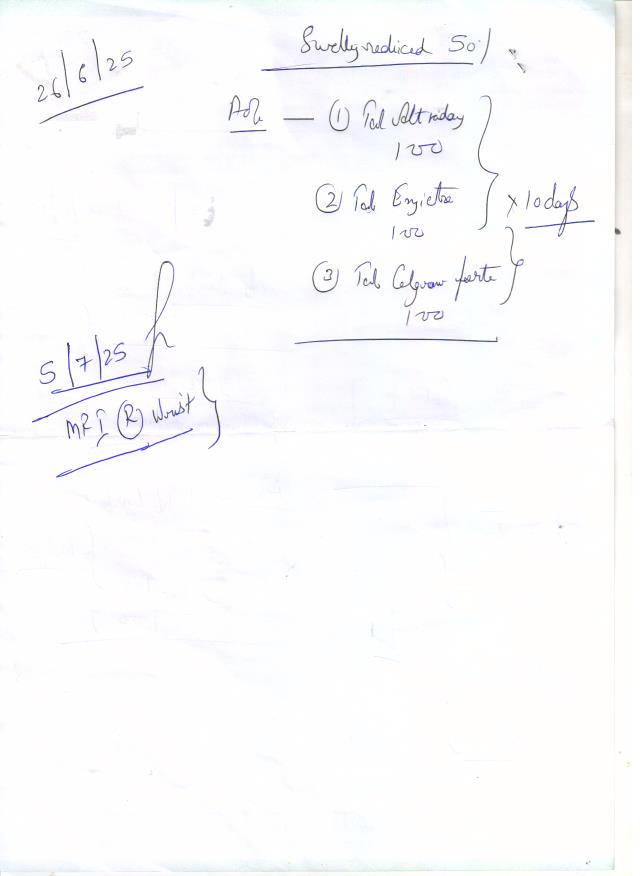 26/6/25
Swelling reduced 50%
Adv — ① Tab Altraday
100
② Tab Enzictra
100
x 10 days
③ Tab Calgrow forte
100
5/7/25
MRI Ⓡ Wrist